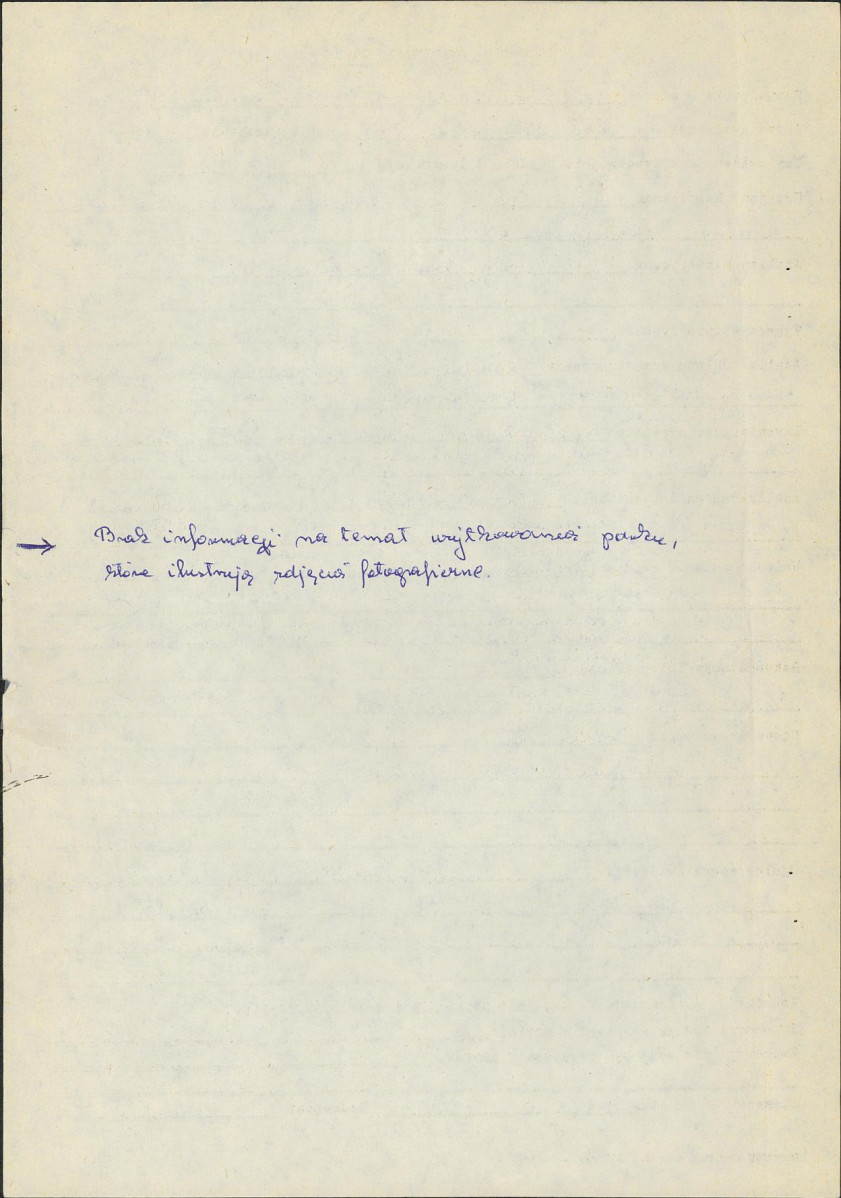 → Brak informacji na temat użytkowania parku,
które ilustrują zdjęcia fotograficzne.